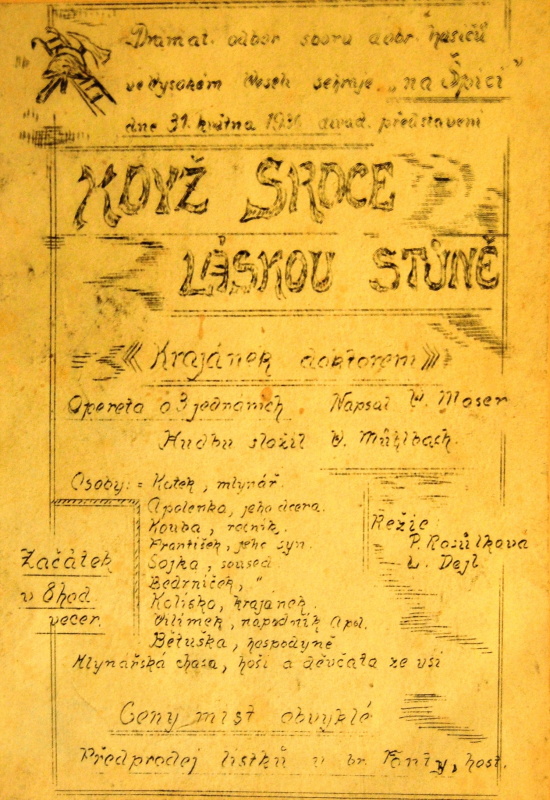 Dramat. odbor sboru dobr. hasičů
ve Vysokém Veselí sehraje „na Špici“
dne 31. května divad. představení
KDYŽ SRDCE
LÁSKOU STŮNĚ
« Krajánek doktorem »
Opereta o 3 jednáních Napsal Moser
Hudbu složil Mühlbach.
Osoby: = Kotek, mlynář.
Apolenka, jeho dcera.
Kouba, rolník.
František, jeho syn.
Sojka, soused
Bedrníček, "
Kolísko, krajánek.
Vilímek, nápadník Apol.
Bětuška, hospodyně
Mlynářská chasa, hoši a děvčata ze vsi
Režie:
P. Rosůlkova
L. Dejl
Začátek
v 8 hod
večer.
Ceny míst obvyklé
Předprodej lístků u br. Fanty, host.